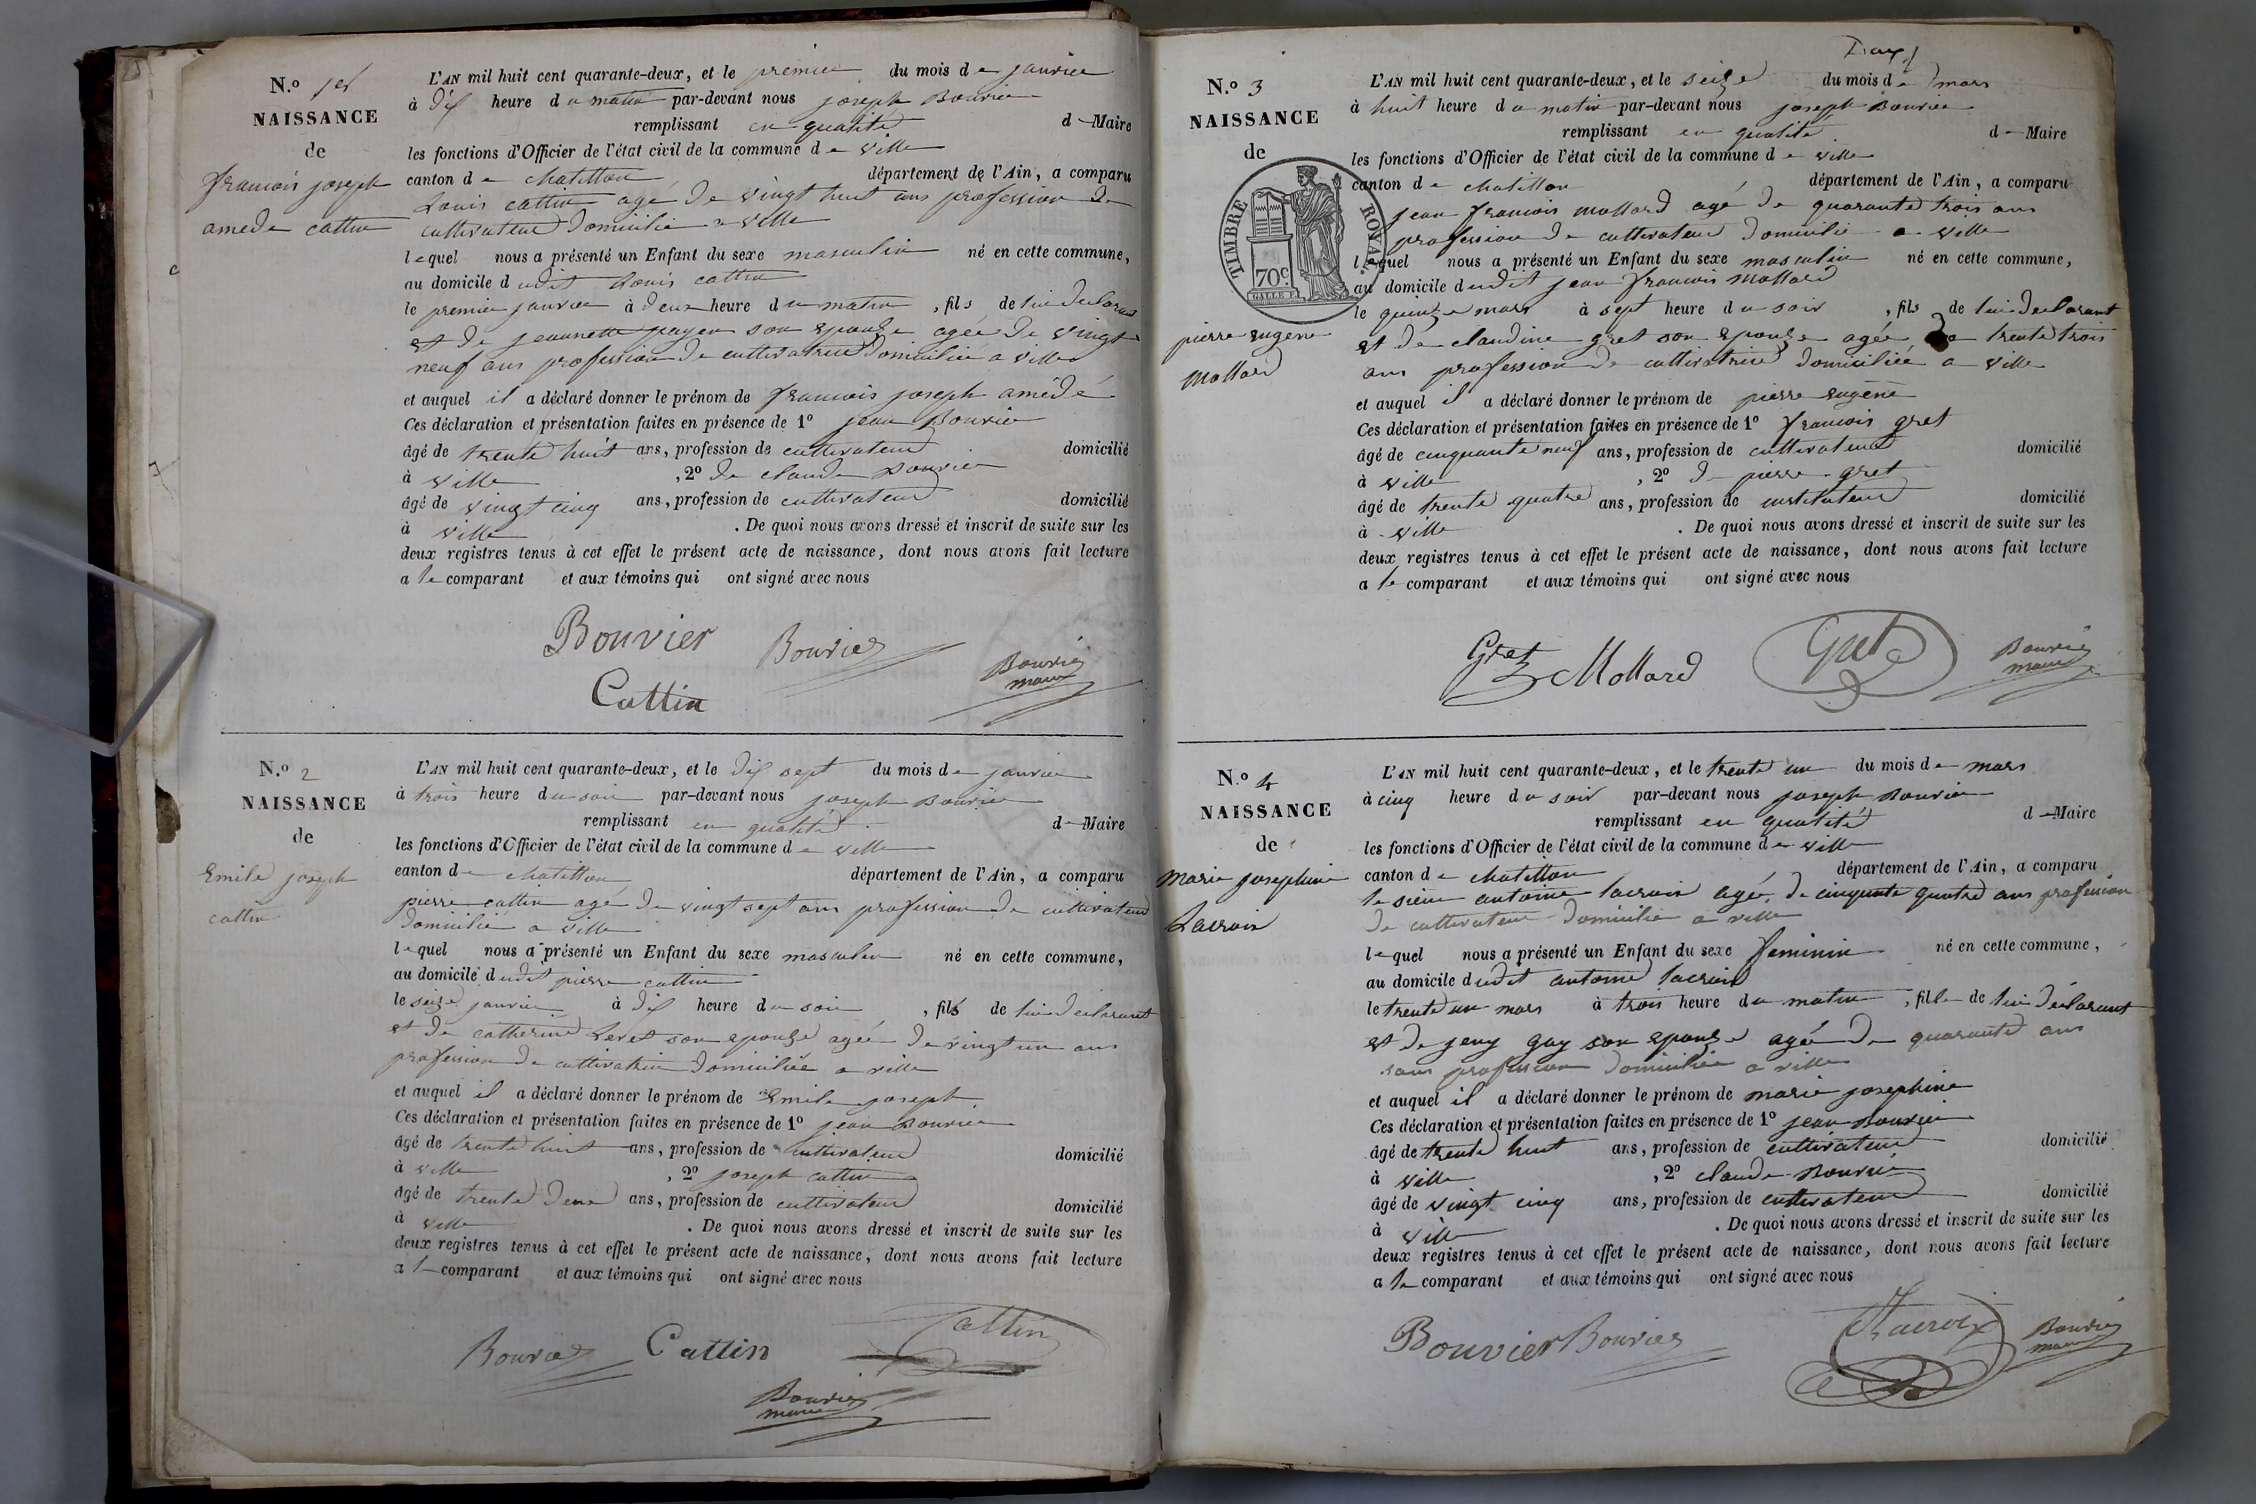 N.o 1er
NAISSANCE
de
francois joseph
amede cattin
L'AN mil huit cent quarante-deux, et le premier du mois de janvier
à dix heure du matin par-devant nous joseph Bouvier
remplissant en qualité de Maire
les fonctions d'Officier de l'état civil de la commune de ville
canton de chatillon département de l'Ain, a comparu
Louis cattin agé de vingt huit ans profession de
cultivateur domicilié a ville
lequel nous a présenté un Enfant du sexe masculin né en cette commune,
au domicile dudit Louis cattin
le premier janvier à deux heure du matin, fils de lui declarant
et de jeannette payen son epouse agée de vingt
neuf ans profession de cultivatrice domiciliée a ville
et auquel il a déclaré donner le prénom de francois joseph amédé
Ces déclaration et présentation faites en présence de 1o jean Bouvier
âgé de trente huit ans, profession de cultivateur domicilié
à ville, 2o de claude Bouvier
âgé de vingt cinq ans, profession de cultivateur domicilié
à ville. De quoi nous avons dressé et inscrit de suite sur les
deux registres tenus à cet effet le présent acte de naissance, dont nous avons fait lecture
a le comparant et aux témoins qui ont signé avec nous
Bouvier Bouvier Bouvier
maire
Cattin
N.o 2
NAISSANCE
de
Emile joseph
cattin
L'AN mil huit cent quarante-deux, et le dix sept du mois de janvier
à trois heure du soir par-devant nous joseph Bouvier
remplissant en qualité de Maire
les fonctions d'Officier de l'état civil de la commune de ville
canton de chatillon département de l'Ain, a comparu
pierre cattin agé de vingt sept ans profession de cultivateur
domicilié a ville
lequel nous a présenté un Enfant du sexe masculin né en cette commune,
au domicile dudit pierre cattin
le seize janvier à dix heure du soir, fils de lui declarant
et de catherine son epouse agée de vingt un ans
profession de cultivatrice domiciliée a ville
et auquel il a déclaré donner le prénom de Emile joseph
Ces déclaration et présentation faites en présence de 1o jean Bouvier
âgé de trente huit ans, profession de cultivateur domicilié
à ville, 2o joseph cattin
âgé de trente deux ans, profession de cultivateur domicilié
à ville. De quoi nous avons dressé et inscrit de suite sur les
deux registres tenus à cet effet le présent acte de naissance, dont nous avons fait lecture
a le comparant et aux témoins qui ont signé avec nous
Bouvier Cattin Cattin
Bouvier
maire
N.o 3
NAISSANCE
de
TIMBRE ROYAL
70c.
pierre eugene
Mollard
L'AN mil huit cent quarante-deux, et le seize du mois de mars
à huit heure du matin par-devant nous joseph Bouvier
remplissant en qualité de Maire
les fonctions d'Officier de l'état civil de la commune de ville
canton de chatillon département de l'Ain, a comparu
jean francois mollard agé de quarante trois ans
profession de cultivateur domicilié a ville
lequel nous a présenté un Enfant du sexe masculin né en cette commune,
au domicile dudit jean francois Mollard
le quinze mars à sept heure du soir, fils de lui declarant
et de claudine gret son epouse agée de trente trois
ans profession de cultivatrice domiciliée a ville
et auquel il a déclaré donner le prénom de pierre eugène
Ces déclaration et présentation faites en présence de 1o francois gret
âgé de cinquante neuf ans, profession de cultivateur domicilié
à ville, 2o d pierre gret
âgé de trente quatre ans, profession de instituteur domicilié
à ville. De quoi nous avons dressé et inscrit de suite sur les
deux registres tenus à cet effet le présent acte de naissance, dont nous avons fait lecture
a le comparant et aux témoins qui ont signé avec nous
Gret Mollard Gret Bouvier
maire
N.o 4
NAISSANCE
de
marie josephine
Lacroix
L'AN mil huit cent quarante-deux, et le trente un du mois de mars
à cinq heure du soir par-devant nous joseph Bouvier
remplissant en qualité de Maire
les fonctions d'Officier de l'état civil de la commune de ville
canton de chatillon département de l'Ain, a comparu
le sieur antoine lacroix agé de cinquante quatre ans profession
de cultivateur domicilié a ville
lequel nous a présenté un Enfant du sexe feminin né en cette commune,
au domicile dudit antoine lacroix
le trente un mars à trois heure du matin, fille de lui déclarant
et de jeny gay son epouse agée de quarante ans
sans profession domiciliée a ville
et auquel il a déclaré donner le prénom de marie josephine
Ces déclaration et présentation faites en présence de 1o jean Bouvier
âgé de trente huit ans, profession de cultivateur domicilié
à ville, 2o claude Bouvier
âgé de vingt cinq ans, profession de cultivateur domicilié
à ville. De quoi nous avons dressé et inscrit de suite sur les
deux registres tenus à cet effet le présent acte de naissance, dont nous avons fait lecture
a le comparant et aux témoins qui ont signé avec nous
Bouvier Bouvier Lacroix Bouvier
maire